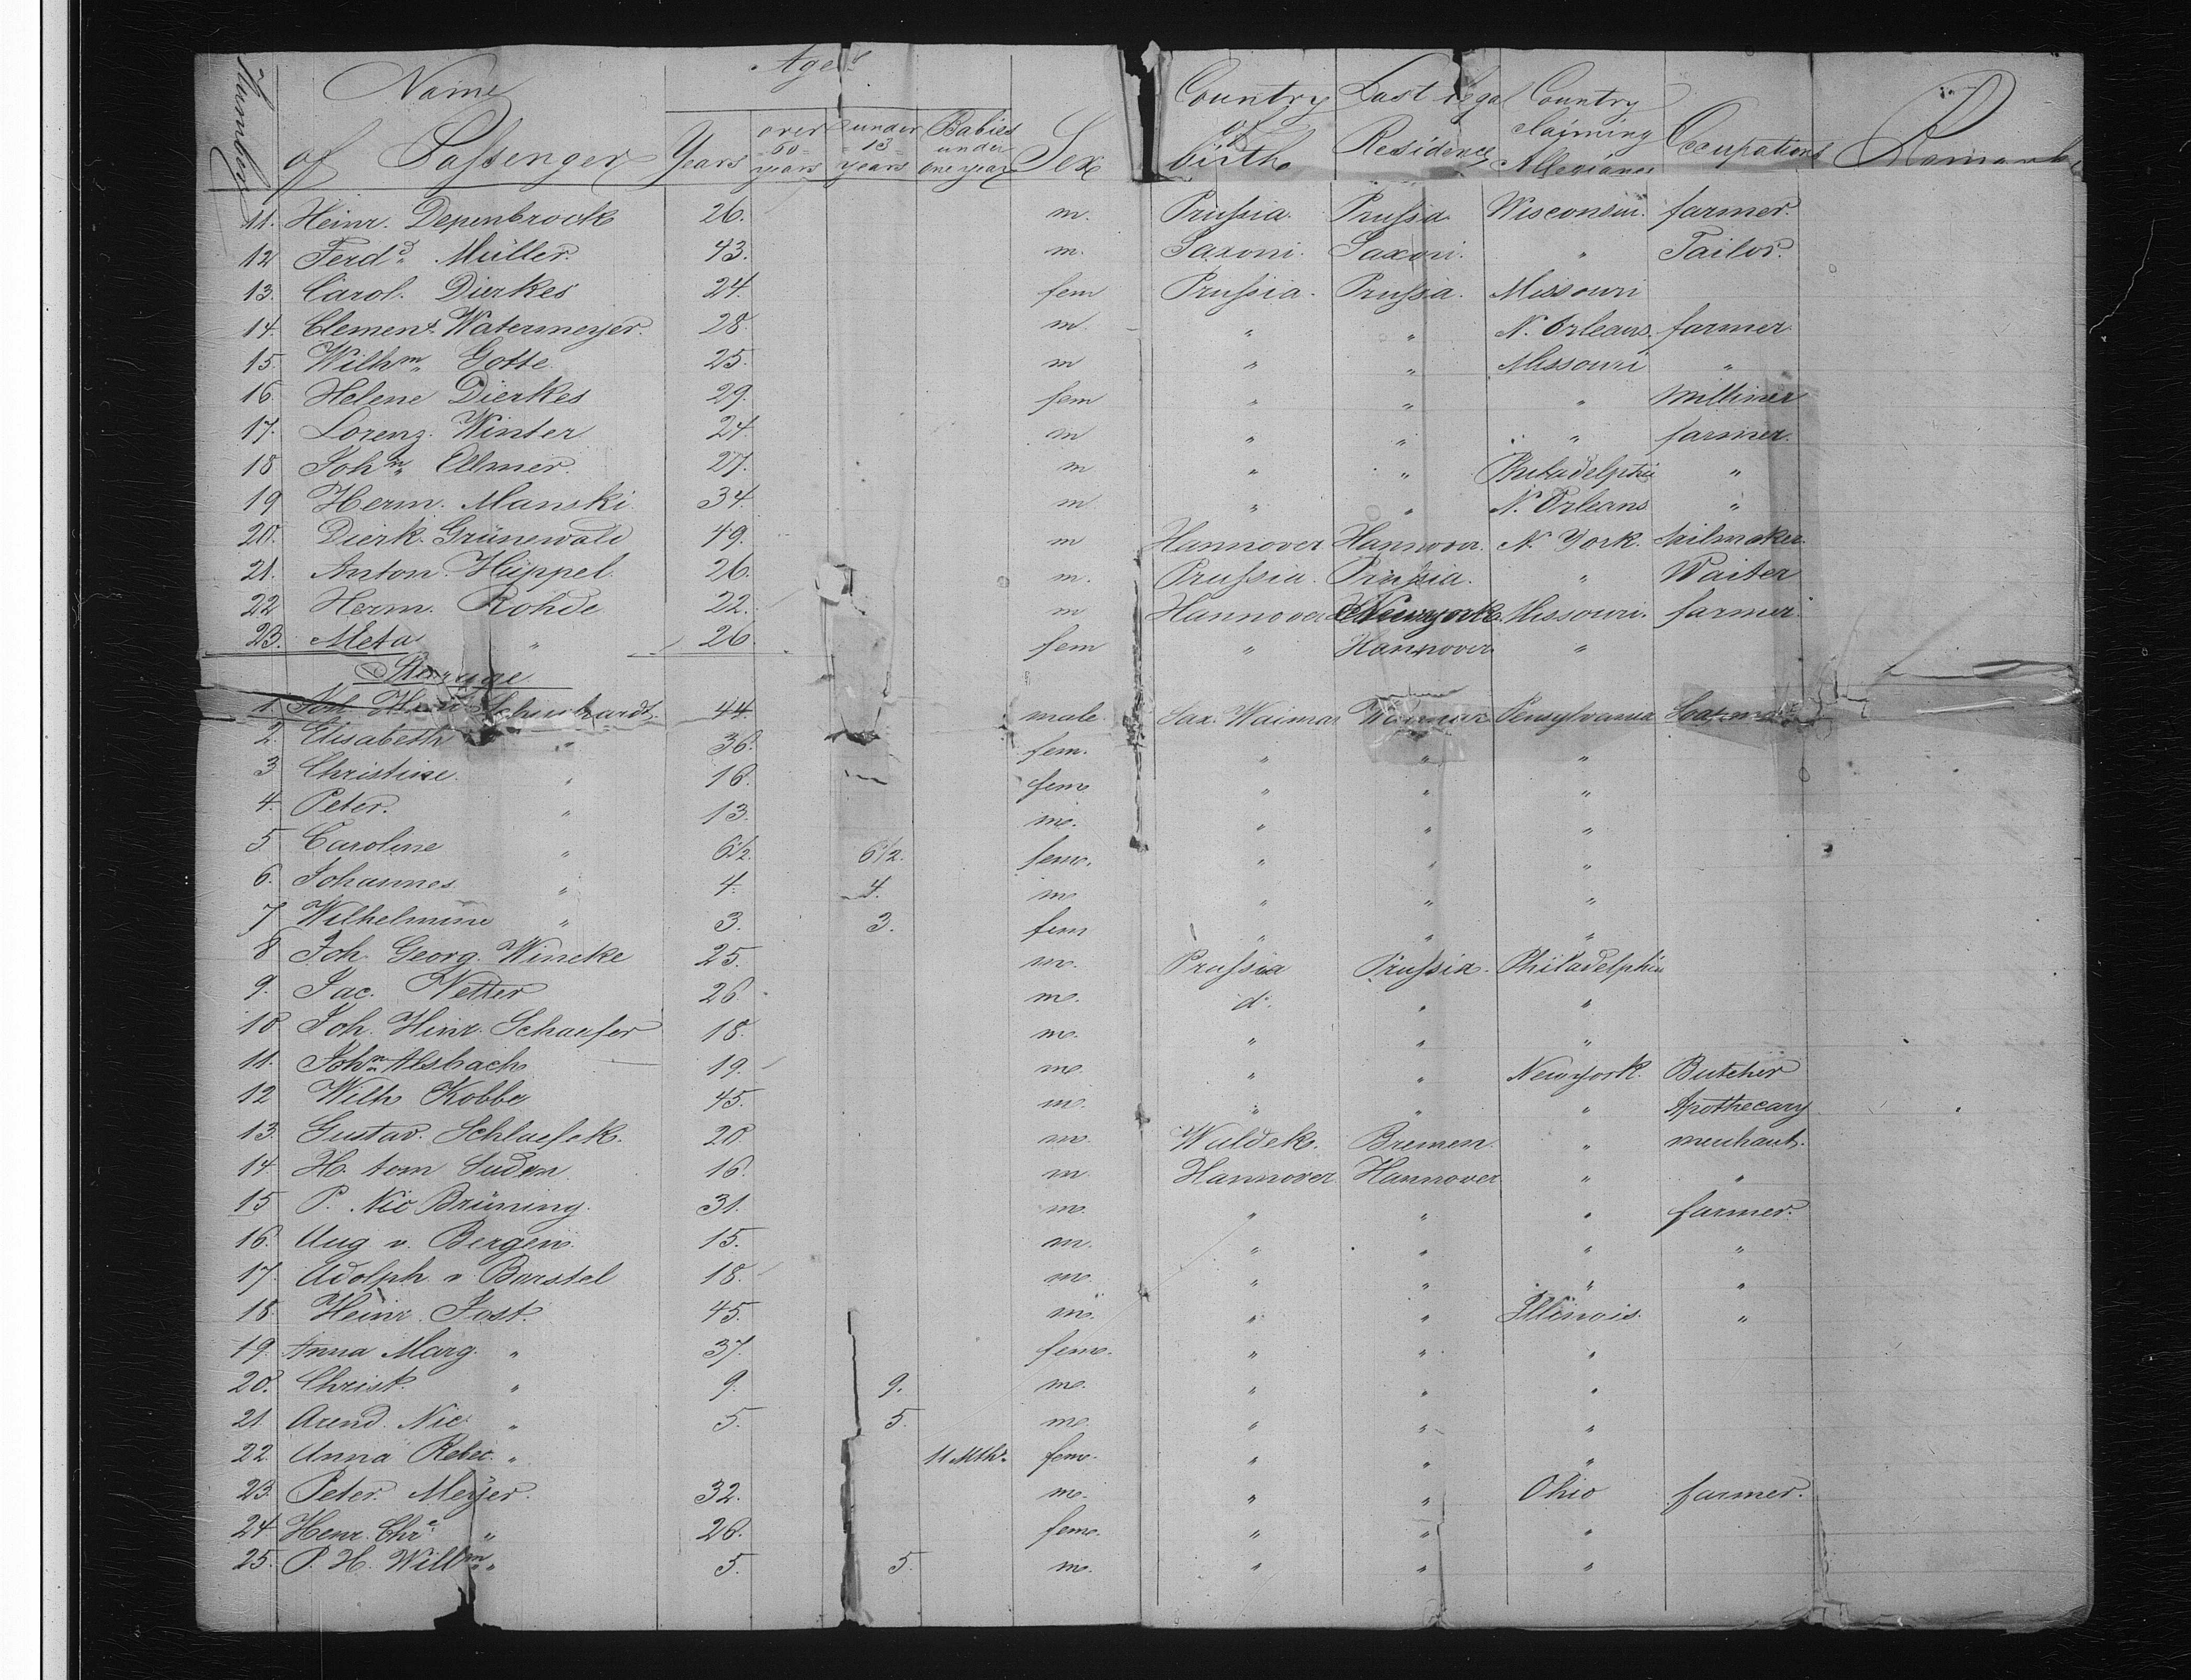 Number
Name of Passenger
Ages
Years
over 60 years
under 13 years
Babies under one year
Sex
Country of birth
Last legal Residence
Country claiming Allegiance
Occupations
Remarks
11. Heinr. Depenbrock 26. m. Prussia. Prussia Wisconsin. farmer.
12 Ferd.d Müller. 43. m. Saxoni. Saxoni. " Tailor.
13. Carol. Dierkes 24. fem Prussia. Prussia. Missouri
14. Clemens Watermeyer. 28. m " " N. Orleans. farmer
15. Wilhm. Gotte. 25. m " " Missouri "
16. Helene Dierkes 29. fem " " " Milliner
17. Lorenz. Winter 24. m " " " farmer.
18 Johnn. Ellmer. 27. m " " Philadelphia "
19 Herm. Manski. 34. m " " N. Orleans "
20. Dierk. Grünewald 49. m Hannover Hannover. N. York. Sailmaker.
21. Anton. Hüppel. 26. m. Prussia. Prussia. " Waiter
22 Herm. Rohde 22. m Hannover Newyork. Missouri. farmer.
23. Meta " 26. fem " Hannover "
Steerage
1. Joh. Schuchardt 44. male. Sax. Waimar Waimar Pensylvania
2. Elisabeth " 36. fem. " " "
3 Christine. " 16. fem " " "
4. Peter. " 13. m. " " "
5 Caroline " 6 1/2. 6 1/2. fem. " " "
6. Johannes. " 4. 4. m " " "
7 Wilhelmine " 3. 3. fem " " "
8 Joh. Georg. Wincke 25. m. Prussia Prussia. Philadelphia
9. Jac. Netter 26. m. do. " "
10 Joh. Hinr. Schaefer 18. m. " " "
11. Johnn. Alsbach 19. m. " " Newyork. Butcher
12 Wilh Kobbe 45. m. " " " Apothecary
13. Gustav. Schlaefck. 20. m. Waldek. Bremen. " merchant.
14 H. tom Suden 16. m. Hannover Hannover " "
15 P. Nic Brüning. 31. m. " " " farmer.
16. Aug v. Bergen. 15. m. " " " "
17. Adolph v Borstel 18. m. " " " "
18. Heinr. Jost. 45. m. " " Illinois. "
19. Anna Marg. " 37. fem. " " "
20. Christ. " 9. 9. m. " " "
21 Arend. Nic. " 5. 5 m. " " "
22. Anna Rebec. " 11 Mths. fem. " " "
23. Peter. Meyer. 32. m. " " Ohio farmer.
24 Henr. Chre. " 26. fem. " " "
25. P. H. Willm. " 5. 5. m. " " "